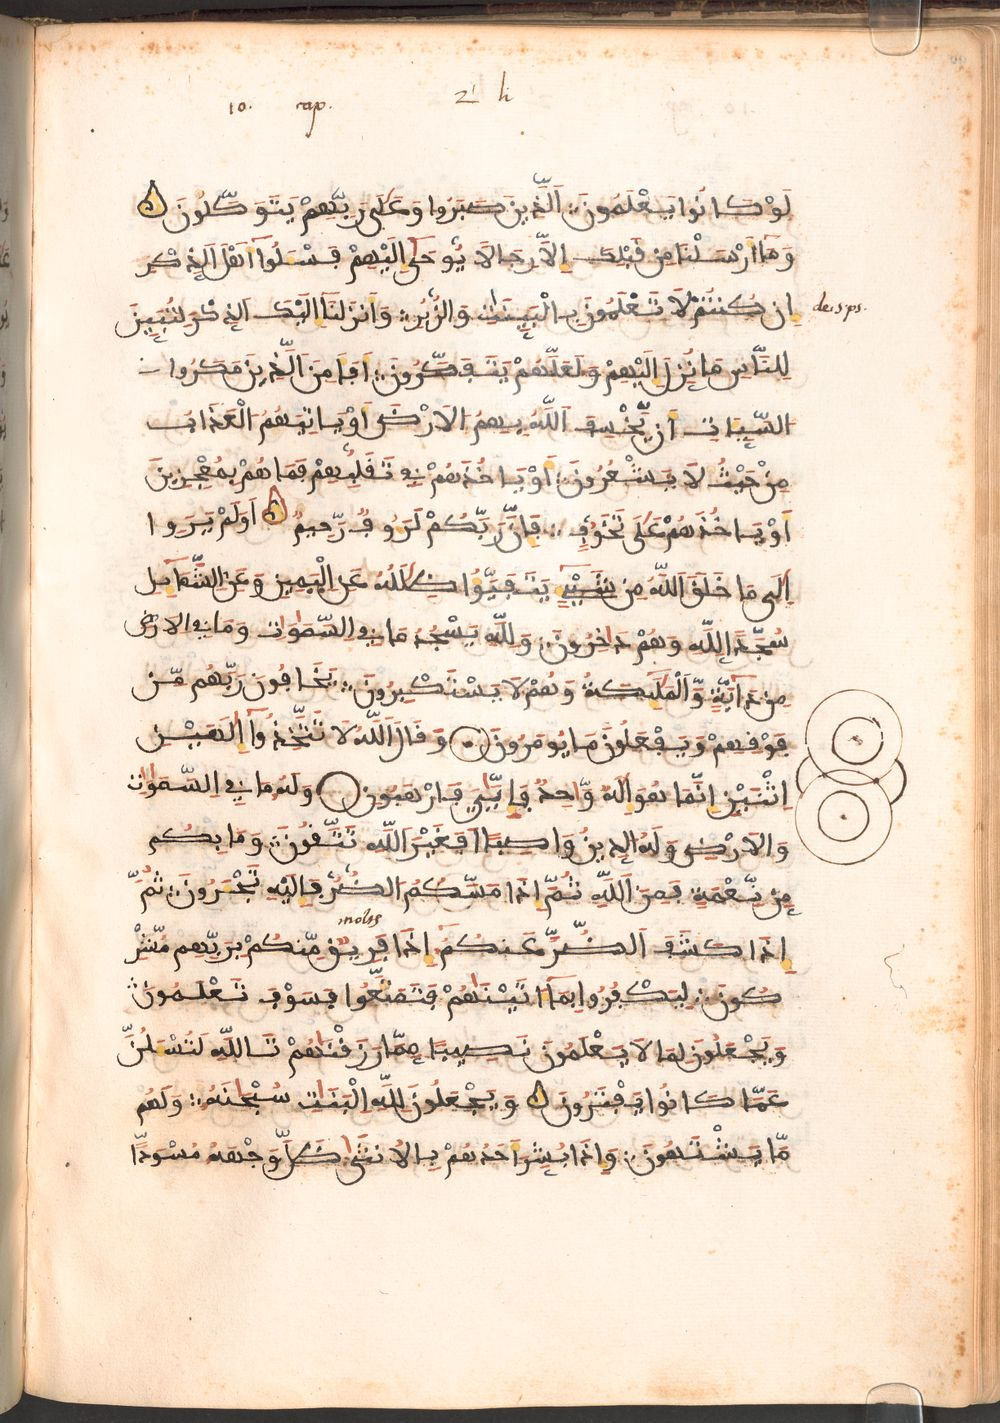 10. cap. 2 li
لَوْ كَانُوا يَعْلَمُونَ الَّذِينَ صَبَرُوا وَعَلَى رَبِّهِمْ يَتَوَكَّلُونَ
وَمَا أَرْسَلْنَا مِن قَبْلِكَ إِلَّا رِجَالًا يُوحَى إِلَيْهِمْ فَسْـَٔلُوا أَهْلَ الذِّكْرِ
إِن كُنتُمْ لَا تَعْلَمُونَ بِالْبَيِّنَٰتِ وَالزُّبُرِ وَأَنزَلْنَا إِلَيْكَ الذِّكْرَ لِتُبَيِّنَ
لِلنَّاسِ مَا نُزِّلَ إِلَيْهِمْ وَلَعَلَّهُمْ يَتَفَكَّرُونَ أَفَأَمِنَ الَّذِينَ مَكَرُوا
السَّيِّـَٔاتِ أَن يَّخْسِفَ اللَّهُ بِهِمُ الْأَرْضَ أَوْ يَاتِيَهُمُ الْعَذَابُ
مِنْ حَيْثُ لَا يَشْعُرُونَ أَوْ يَاخُذَهُمْ فِي تَقَلُّبِهِمْ فَمَا هُمْ بِمُعْجِزِينَ
أَوْ يَاخُذَهُمْ عَلَى تَخَوُّفٍ فَإِنَّ رَبَّكُمْ لَرَءُوفٌ رَّحِيمٌ أَوَلَمْ يَرَوْا
إِلَى مَا خَلَقَ اللَّهُ مِن شَيْءٍ يَتَفَيَّؤُا ظِلَٰلُهُ عَنِ الْيَمِينِ وَعَنِ الشَّمَائِلِ
سُجَّدًا لِلَّهِ وَهُمْ دَاخِرُونَ وَلِلَّهِ يَسْجُدُ مَا فِي السَّمَٰوَٰتِ وَمَا فِي الْأَرْضِ
مِن دَابَّةٍ وَّالْمَلَٰئِكَةُ وَهُمْ لَا يَسْتَكْبِرُونَ يَخَافُونَ رَبَّهُم مِّن
فَوْقِهِمْ وَيَفْعَلُونَ مَا يُومَرُونَ وَقَالَ اللَّهُ لَا تَتَّخِذُوا إِلَٰهَيْنِ
اثْنَيْنِ إِنَّمَا هُوَ إِلَٰهٌ وَّاحِدٌ فَإِيَّٰيَ فَارْهَبُونِ وَلَهُ مَا فِي السَّمَٰوَٰتِ
وَالْأَرْضِ وَلَهُ الدِّينُ وَاصِبًا أَفَغَيْرَ اللَّهِ تَتَّقُونَ وَمَا بِكُم
مِن نِّعْمَةٍ فَمِنَ اللَّهِ ثُمَّ إِذَا مَسَّكُمُ الضُّرُّ فَإِلَيْهِ تَجْـَٔرُونَ ثُمَّ
إِذَا كَشَفَ الضُّرَّ عَنكُمْ إِذَا فَرِيقٌ مِّنكُمْ بِرَبِّهِم مُشْرِ
كُونَ لِيَكْفُرُوا بِمَا ءَاتَيْنَٰهُمْ فَتَمَتَّعُوا فَسَوْفَ تَعْلَمُونَ
وَيَجْعَلُونَ لِمَا لَا يَعْلَمُونَ نَصِيبًا مِّمَّا رَزَقْنَٰهُمْ تَاللَّهِ لَتُسْـَٔلُنَّ
عَمَّا كَانُوا يَفْتَرُونَ وَيَجْعَلُونَ لِلَّهِ الْبَنَٰتِ سُبْحَٰنَهُ وَلَهُم
مَّا يَشْتَهُونَ وَإِذَا بُشِّرَ أَحَدُهُمْ بِالْأُنثَى ظَلَّ وَجْهُهُ مُسْوَدًّا